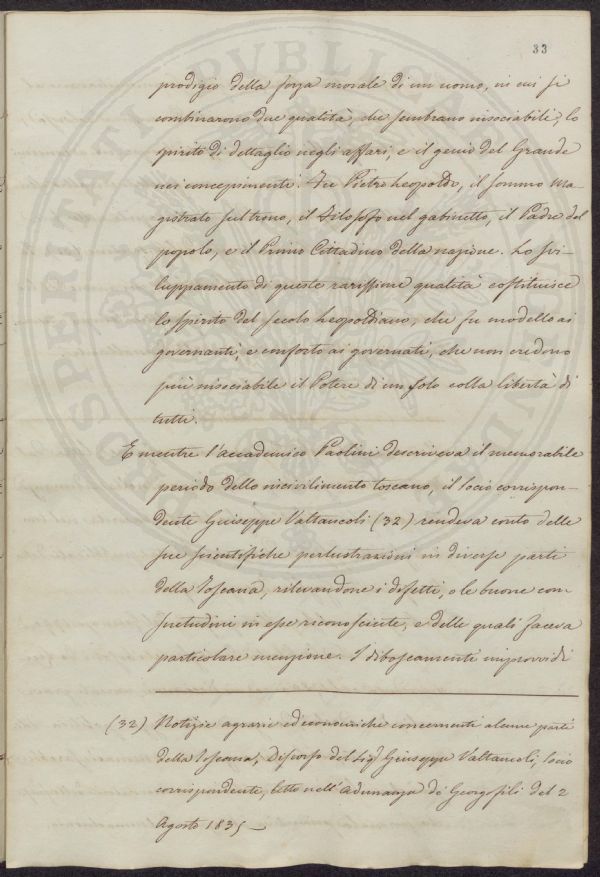 33
prodigio della forza morale di un uomo, in cui si
combinarono due qualità, che sembrano insociabili, lo
spirito di dettaglio negli affari, e il genio del Grande
nei concepimenti. Fu Pietro Leopoldo, il sommo Ma-
gistrato sul trono, il Filosofo nel gabinetto, il Padre del
popolo, e il Primo Cittadino della nazione. Lo svi-
luppamento di queste rarissime qualità costituisce
lo spirito del secolo Leopoldiano, che fu modello ai
governanti, e conforto ai governati, che non credono
più insociabile il Potere di un solo colla libertà di
tutti.
E mentre l'accademico Paolini descriveva il memorabile
periodo dello incivilimento toscano, il socio corrispon-
dente Giuseppe Valtancoli (32) rendeva conto delle
sue scientifiche perlustrazioni in diverse parti
della Toscana, rilevandone i difetti, o le buone con
suetudini in esse riconosciute, e delle quali faceva
particolare menzione. I diboscamenti improvvidi
(32) Notizie agrarie ed economiche concernenti alcune parti
della Toscana, Discorso del Sigr Giuseppe Valtancoli, socio
corrispondente, letto nell'adunanza de' Georgofili del 2
Agosto 1835 —
PROSPERITATI PUBLICAE